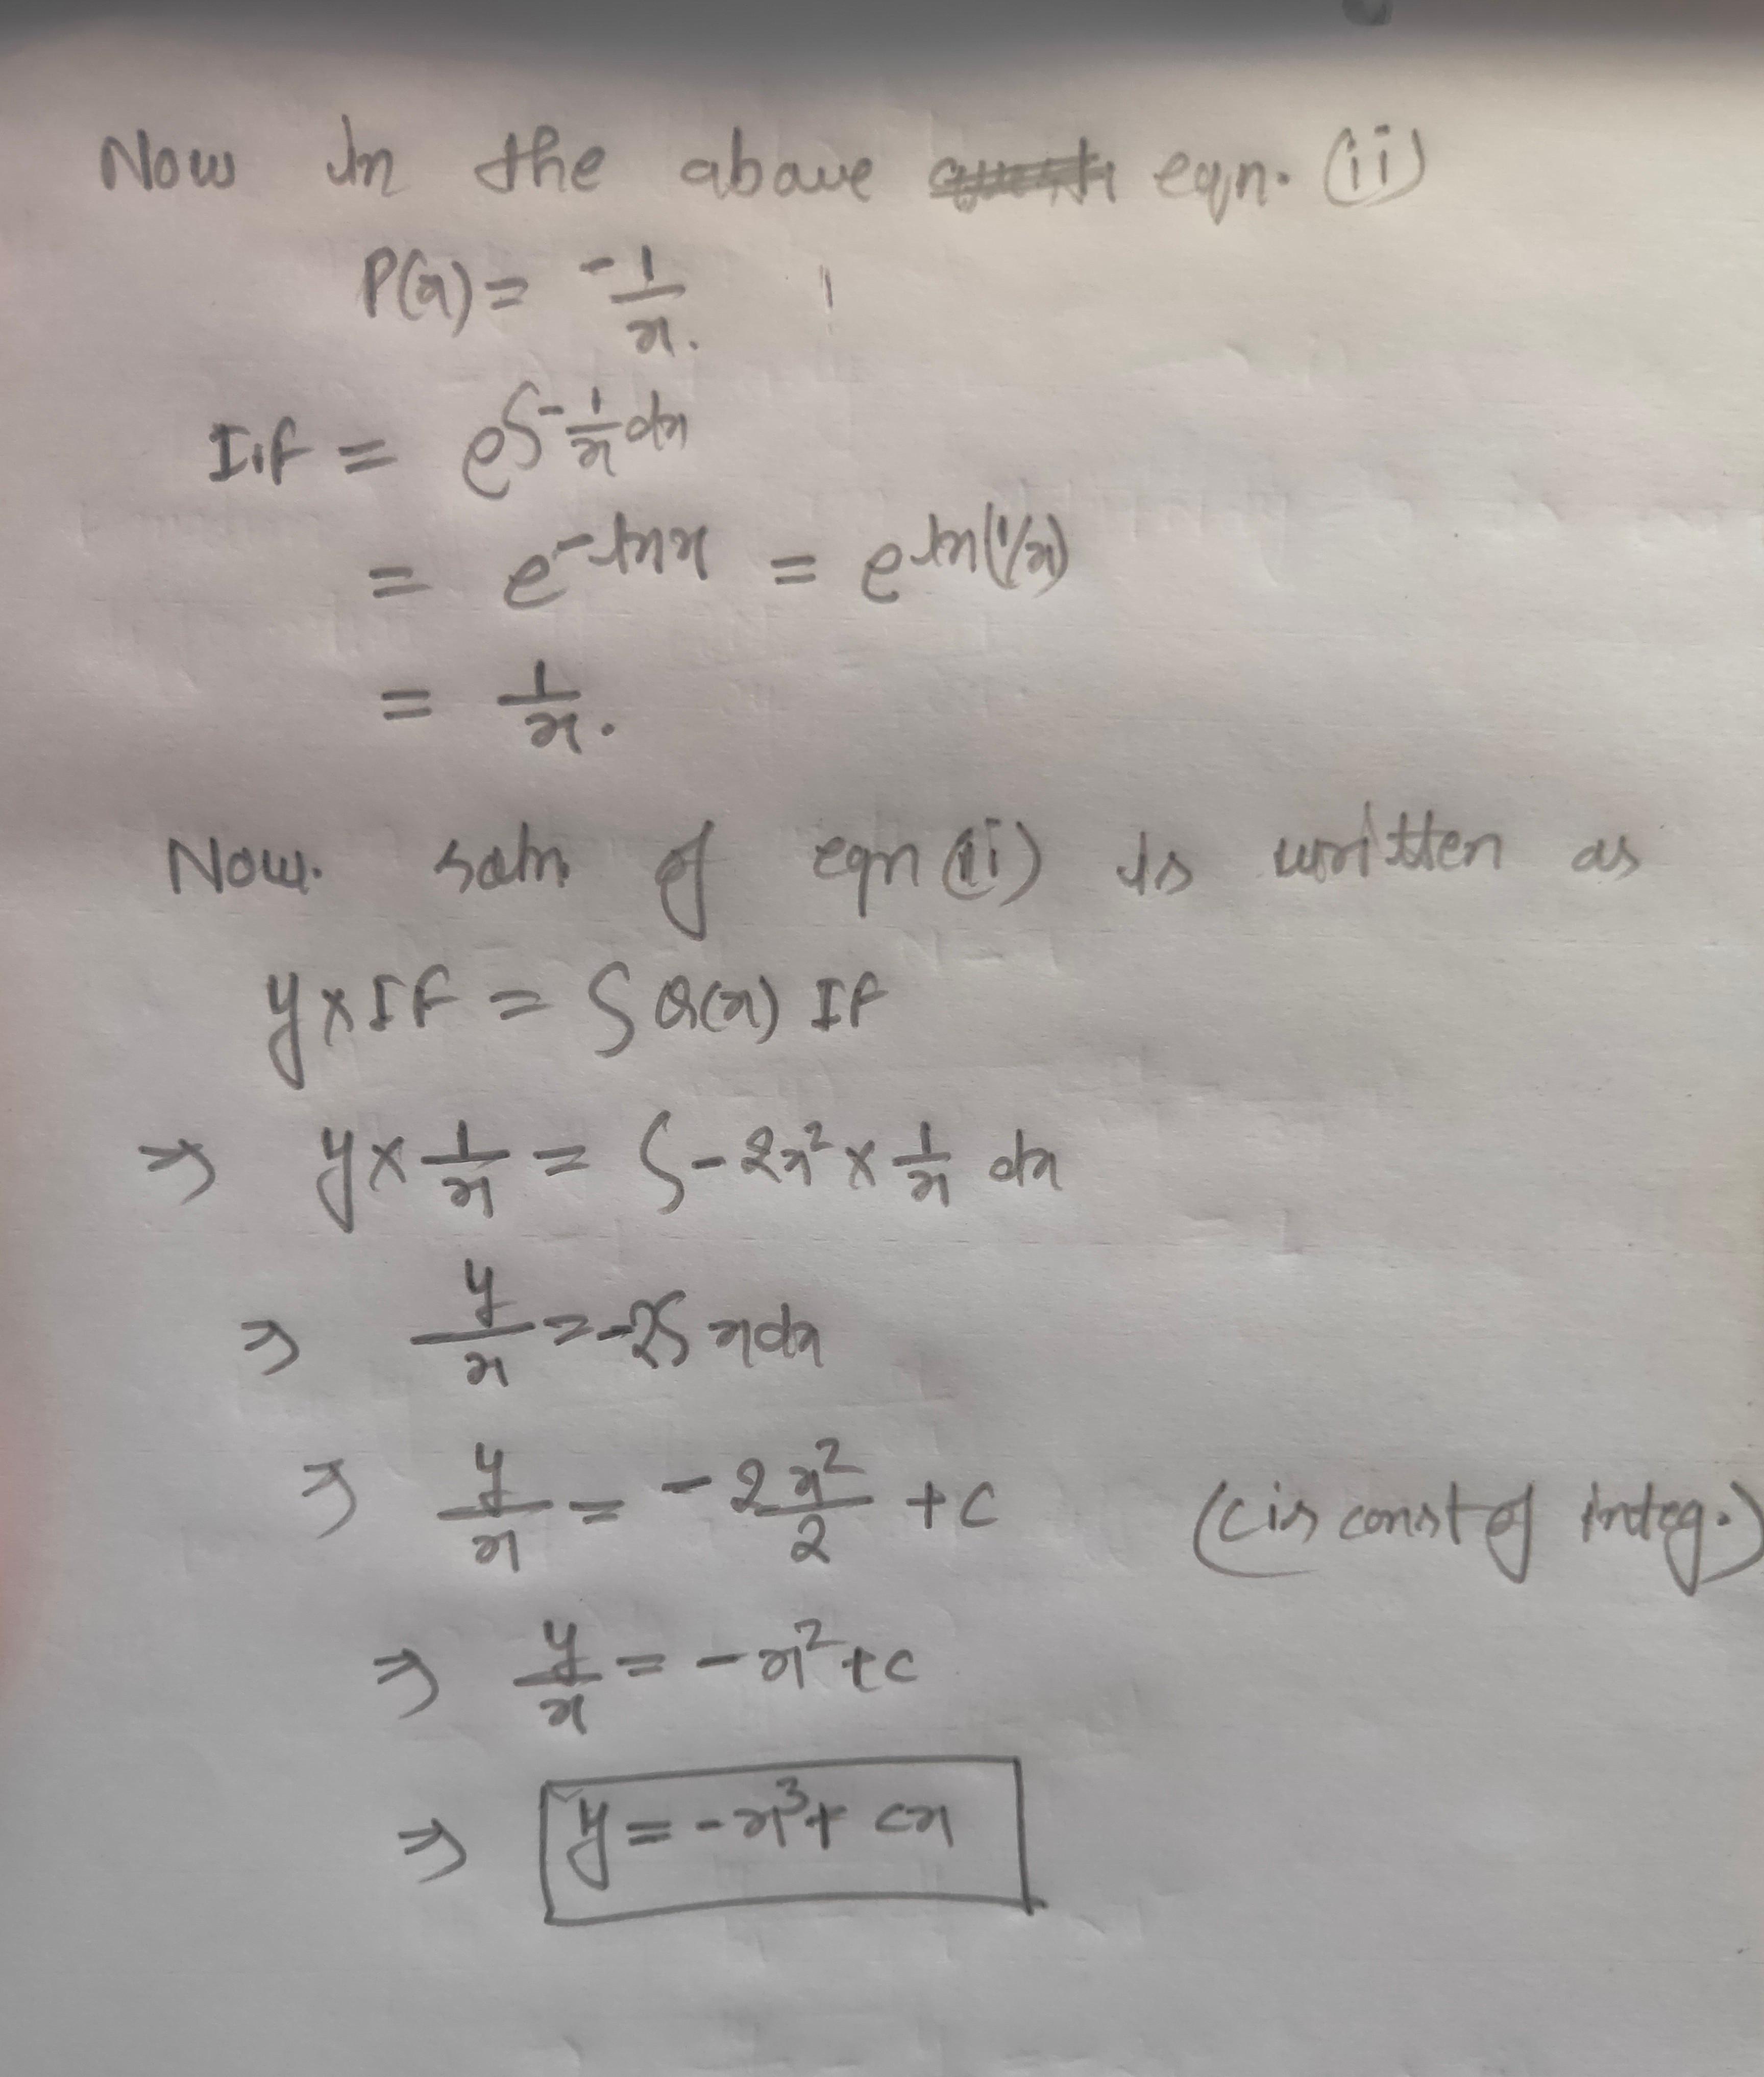 Now in the above eqn. (ii)
P(x) = -1/x.
I.F = e^∫-1/x dx
= e^-lnx = e^ln(1/x)
= 1/x.
Now. soln. of eqn (ii) is written as
y×IF = ∫Q(x) IF
⇒ y×1/x = ∫-2x²×1/x dx
⇒ y/x = -2∫xdx
⇒ y/x = -2x²/2 +c (c is const of integ.)
⇒ y/x = -x²+c
⇒ y = -x³+ cx